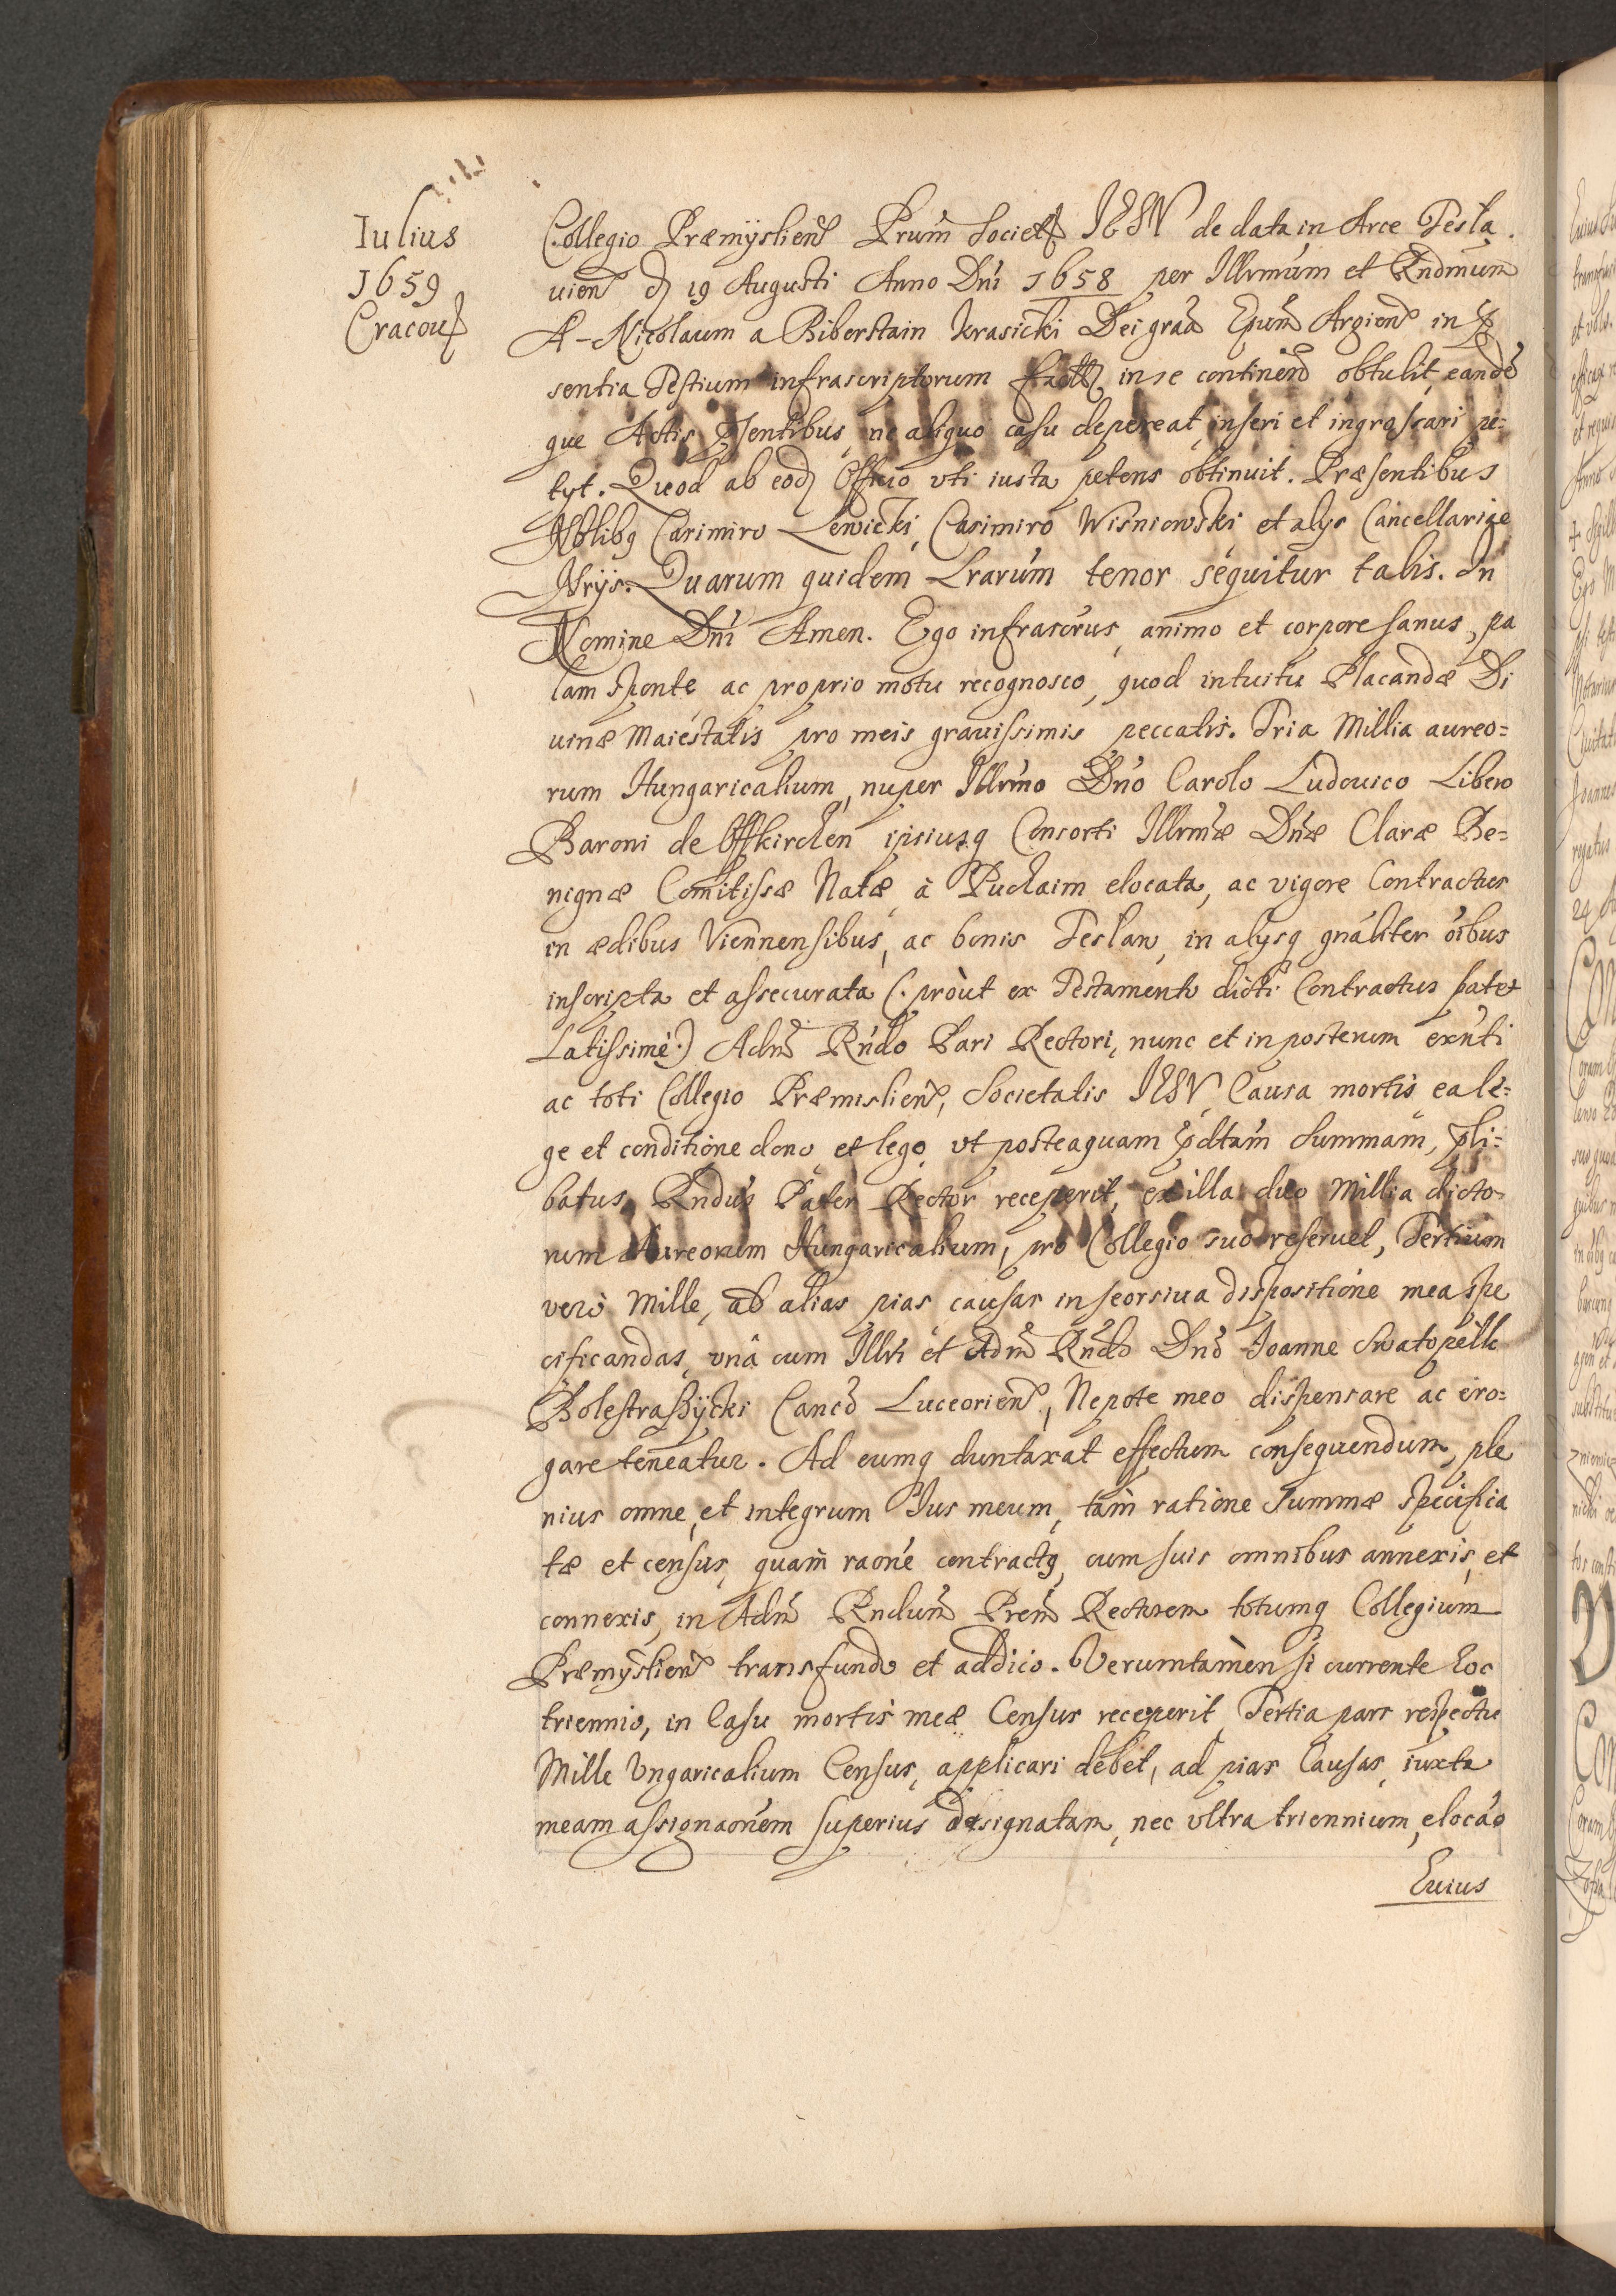 Iulius
1659
Cracou
Collegio Præmÿslien Prum Societ IESV de data in Arce Tesla.
uien d 19 Augusti Anno Dni 1658 per Illrmum et Rndmum
A-Nicolaum a Biberstain Krasicki Dei graa Epum Argien in p
sentia Testium infrascriptorum fact in se continen obtulit, eande
que Actis psentibus, ne aliquo casu depereat, inseri et ingrossari pe=
tyt. Quod ab eod Officio vti iusta petens obtinuit. Præsentibus
Nblibq Casimiro Lewicki, Casimiro Wisniowski et alys Cancellariæ
Nrijs. Quarum quidem Lrarum tenor sequitur talis. In
Nomine Dni Amen. Ego infrascrus, animo et corpore sanus, pa
lam sponte, ac proprio motu recognosco, quod intuitu Placandæ Di
uinæ Maiestatis pro meis grauissimis peccatis. Tria Millia aureo=
rum Hungaricalium, nuper Illrmo Dno Carolo Ludouico Libero
Baroni de Offkirchen ipsiusq Consorti Illrmæ Dnæ Claræ Be=
nignæ Comitissæ Natæ à Puchaim elocata, ac vigore Contractus
in ædibus Viennensibus, ac bonis Teslau, in alysq gnaliter oibus
inscripta et assecurata (. proùt ex Testamento dicti Contractus patet
Latissimè.) Adm Rndo Pari Rectori, nunc et in posterum exnti
ac toti Collegio Præmislien, Societatis IESV, Causa mortis ea le=
ge et conditione dono et lego, vt posteaquam pdtam Summam, pli=
batus, Rndus Pater Rector receperit, ex illa duo Millia dicto=
rum Aureorum Hungaricalium, pro Collegio suo reseruet, Tertium
verò Mille, ab alias pias causas in seorsiua dispositione mea spe
cificandas, vnâ cum Illri et Adm Rndo Dno Joanne Swatopelk
Bolestraszÿcki Canco Luceorien, Nepote meo dispensare ac ero=
gare teneatur. Ad eumq duntaxat effectum consequendum, ple
nius omne, et integrum Jus meum, tam ratione Summæ specifica
tæ et census, quam raone contractq, cum suis omnibus annexis, et
connexis, in Adm Rndum Prem Rectorem totumq Collegium
Præmÿslien transfundo et addico. Verumtamèn si currente hoc
triennio, in Casu mortis meæ Census receperit, Tertia pars respectu
Mille Vngaricalium Census, applicari debet, ad pias Causas, iuxta
meam assignaonem superius designatam, nec vltra triennium, elocao
huius